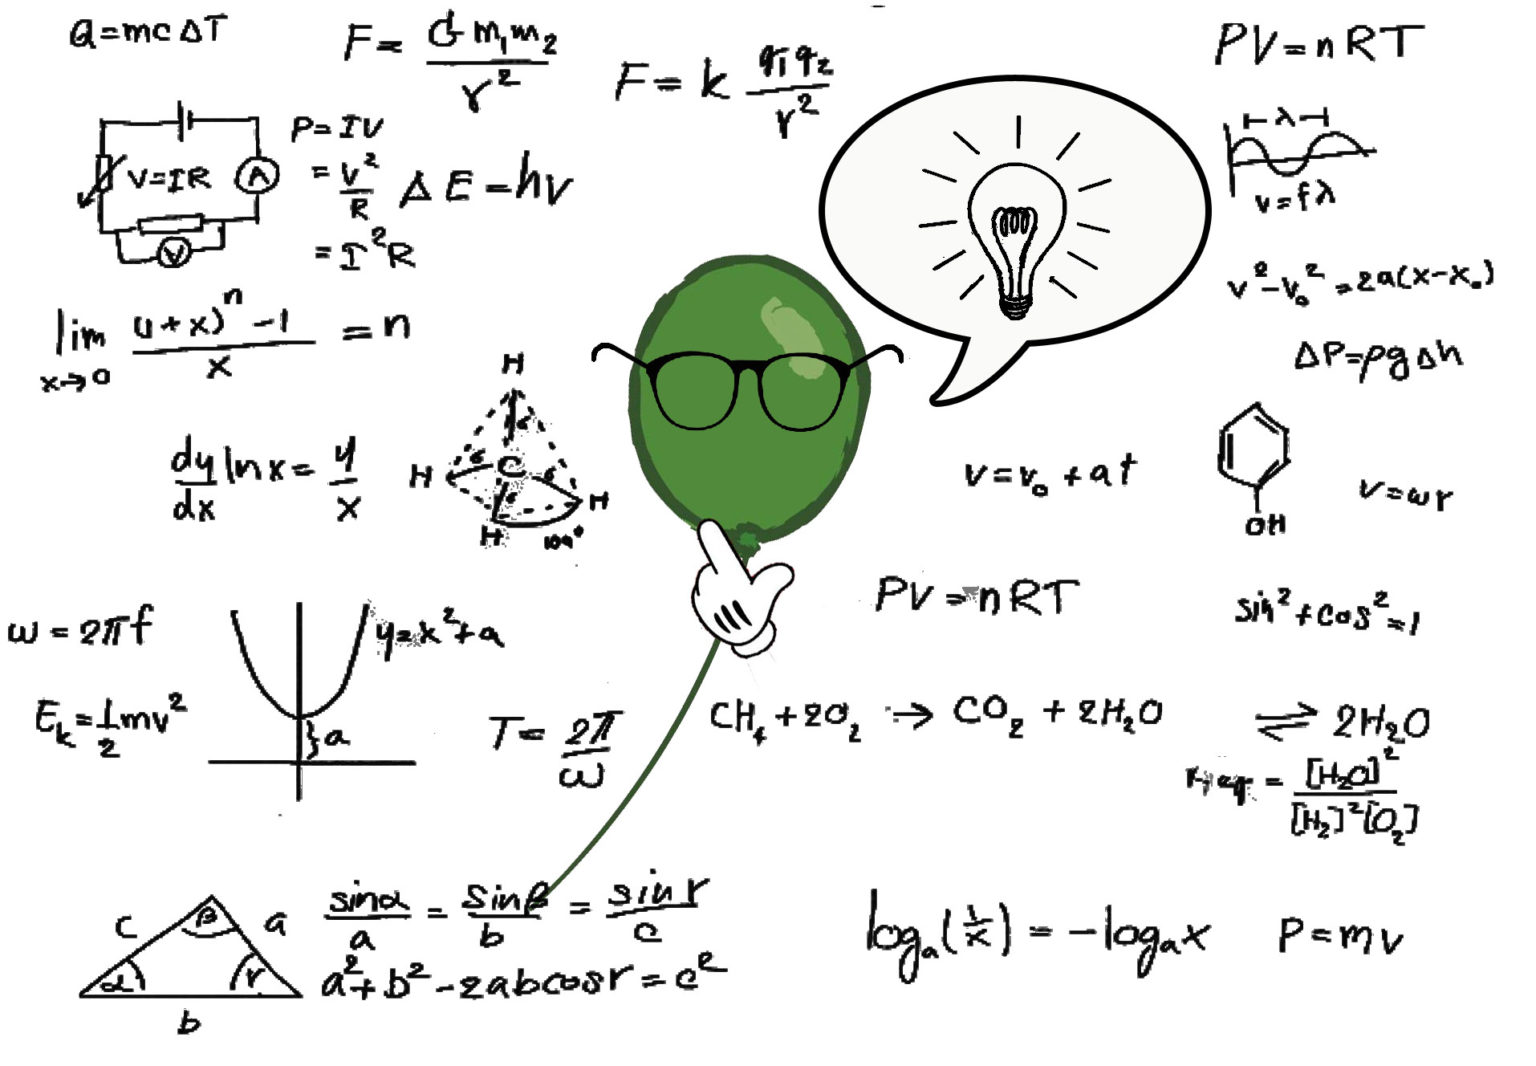 Q=mcΔT
F= G m₁m₂ / r²
F= k q₁q₂ / r²
PV=nRT
V=IR
A
V
P=IV
= V²/R
= I²R
ΔE=hν
λ
v=fλ
v²-v₀²=2a(x-x₀)
lim x→0 ((1+x)ⁿ-1)/x =n
ΔP=ρgΔh
H
C
H
H
H
109°
dy/dx lnx= y/x
v=v₀+at
OH
v=ωr
ω=2πf
y=x²+a
a
PV=nRT
sin²+cos²=1
Eₖ=½mv²
T= 2π/ω
CH₄+2O₂ → CO₂+2H₂O
⇌ 2H₂O
= [H₂O]²/[H₂]²[O₂]
c
β
a
α
r
b
sinα/a = sinβ/b = sinr/c
a²+b²-2abcosr=c²
logₐ(1/x)=-logₐx
P=mv